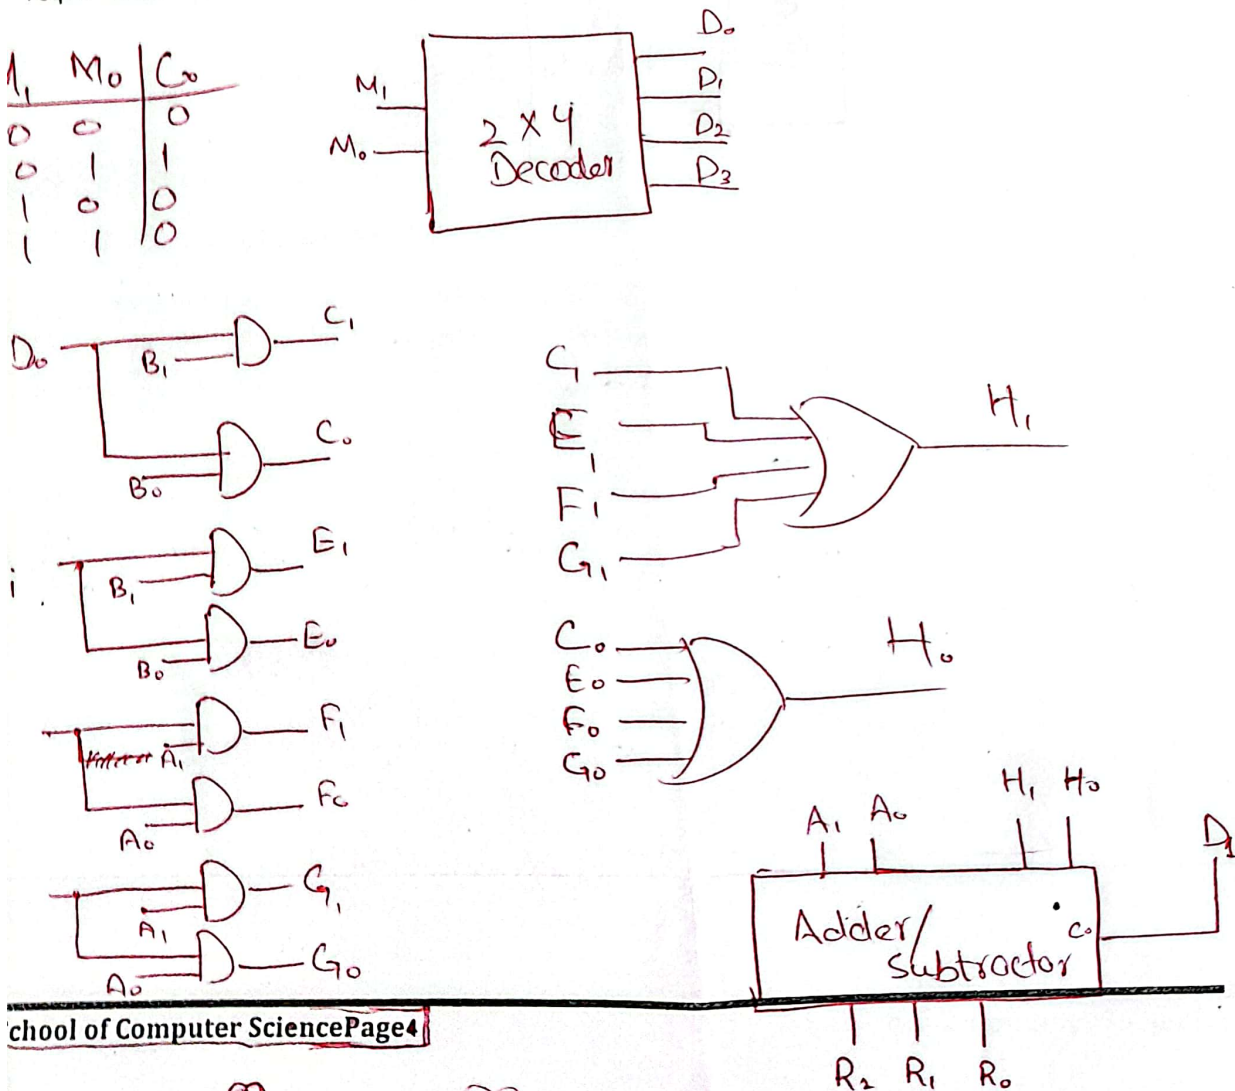 M₀ C₀
0 0 0
0 1 1
1 0 0
1 1 0
M₁
M₀
2 x 4
Decoder
D₀
D₁
D₂
D₃
D₀
B₁
C₁
B₀
C₀
i
B₁
E₁
B₀
E₀
A₁
F₁
A₀
F₀
A₁
G₁
A₀
G₀
C₁
E₁
F₁
G₁
H₁
C₀
E₀
F₀
G₀
H₀
A₁ A₀
H₁ H₀
D₁
Adder/
Subtractor
C₀
R₂ R₁ R₀
chool of Computer SciencePage4